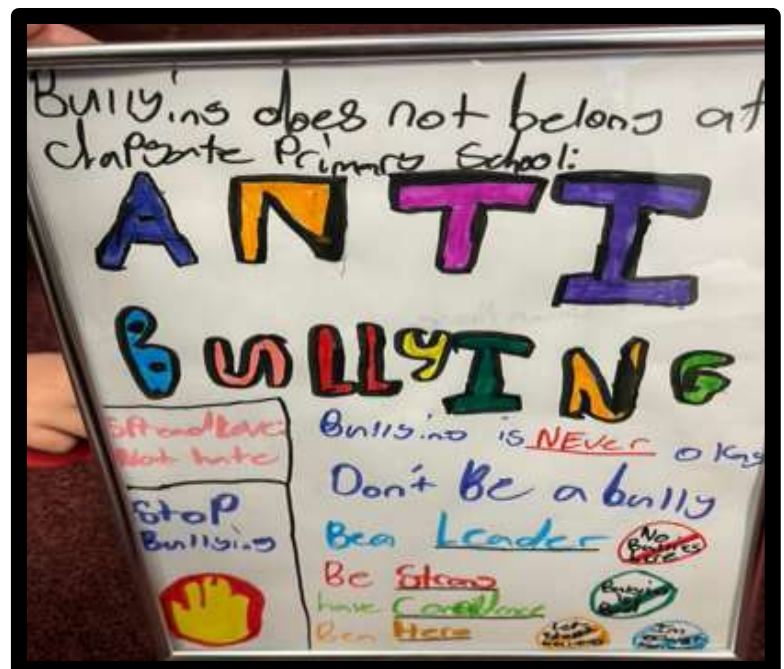 Bullying does not belong at
Clapgate Primary School:
ANTI
BULLYING
Spread Love:
Not hate
Stop
Bullying
Bullying is NEVER okay
Don't Be a bully
Be a Leader
Be Strong
have Confidence
Be a Hero
No
Bullies
here